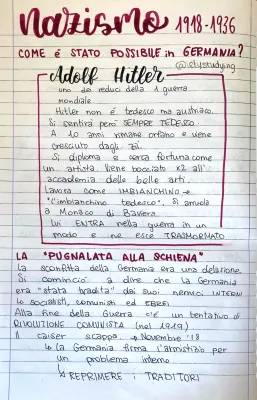 nazismo 1918-1936
COME é STATO POSSIBILE in GERMANIA?
@slystudyng
Adolf Hitler
uno dei reduci della 1 guerra
mondiale
Hitler non é tedesco ma austriaco.
Si sentirà però SEMPRE TEDESCO.
A 10 anni rimane orfano e viene
cresciuto dagli zii.
Si diploma e cerca fortuna come
un artista. Viene bocciato x2 all'
accademia delle belle arti.
Lavora come IMBIANCHINO →
"l'imbianchino tedesco". Si arruola
a Monaco di Baviera
Lui ENTRA nella guerra in un
modo e ne esce TRASFORMATO
LA "PUGNALATA ALLA SCHIENA"
La sconfitta della Germania era una delazione.
Si cominciò a dire che la Germania
era "stata tradita" dai suoi nemici INTERNI
↳ socialisti, comunisti ed EBREI
Alla fine della Guerra c'è un tentativo di
RIVOLUZIONE COMUNISTA (nel 1919)
Il caiser scappa → Novembre '18
↳ la Germania firma l'armistizio per
un problema interno
↳ REPRIMERE i TRADITORI